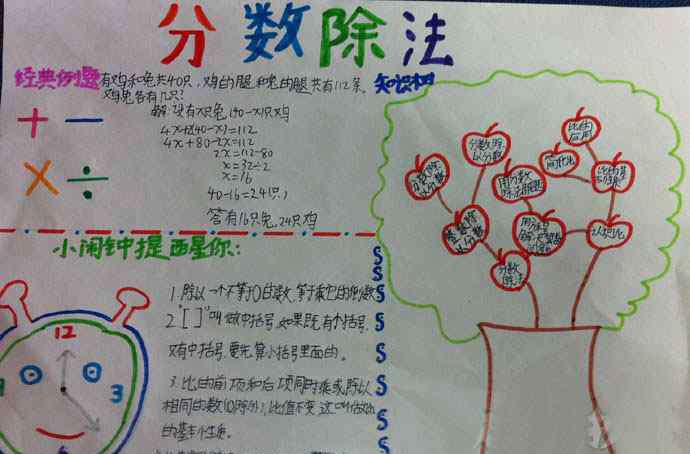 分数除法
经典例题 有鸡和兔共40只，鸡的腿和兔的腿共有112条。 知识树
鸡兔各有几只？
解：设有X只兔(40-X)只鸡
4X+2(40-X)=112
4X+80-2X=112
2X=112-80
X=32÷2
X=16
40-16=24(只)
答有16只兔，24只鸡
+ -
× ÷
小闹钟提醒你：
1.除以一个不等于0的数，等于乘它的倒数
2."[ ]"叫做中括号，如果既有小括号，
又有中括号，要先算小括号里面的。
3.比的前项和后项同时乘或除以
相同的数(0除外)，比值不变，这叫做比
的基本性质。
12
3
9
6
比的
应用
分数除
以分数
简化比
分数除
以分数
用分数
整数除
以分数
认识比
分数
除法
S
S
S
S
S
S
S
S